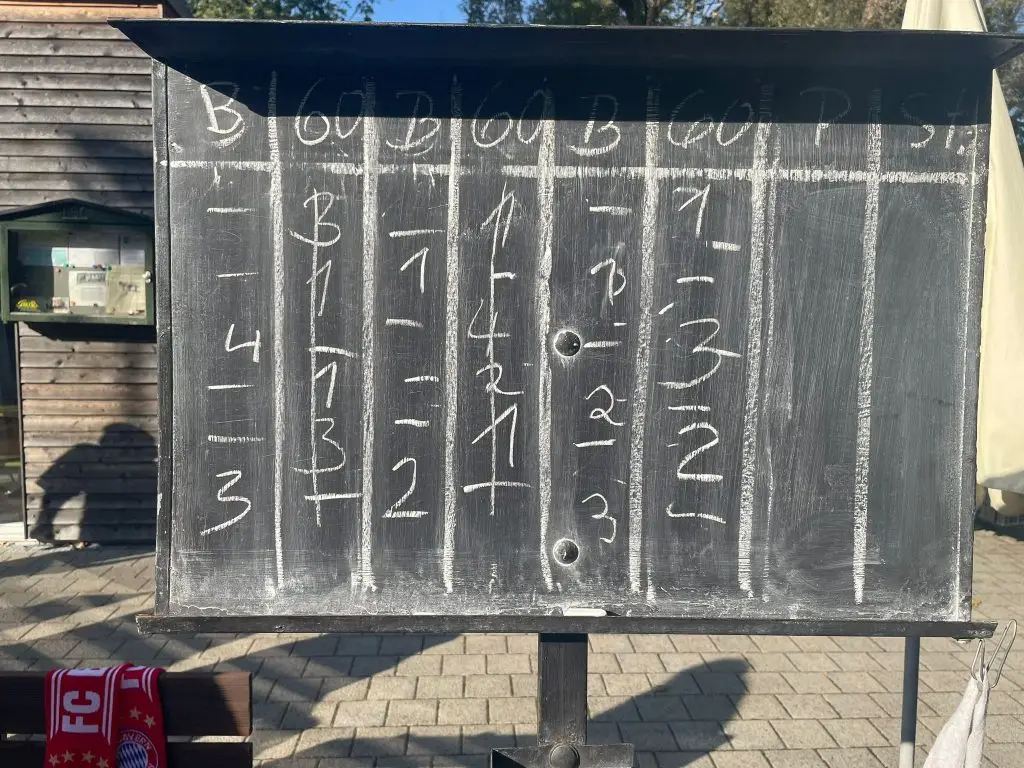 B 60 B 60 B 60 P St.
– 3 – 1 – 1
– 1 1 – 1 –
4 – – 4 – 3
– 1 – 2 2 –
– 3 – 1 – 2
3 – 2 – 3 –
FC
BAYERN